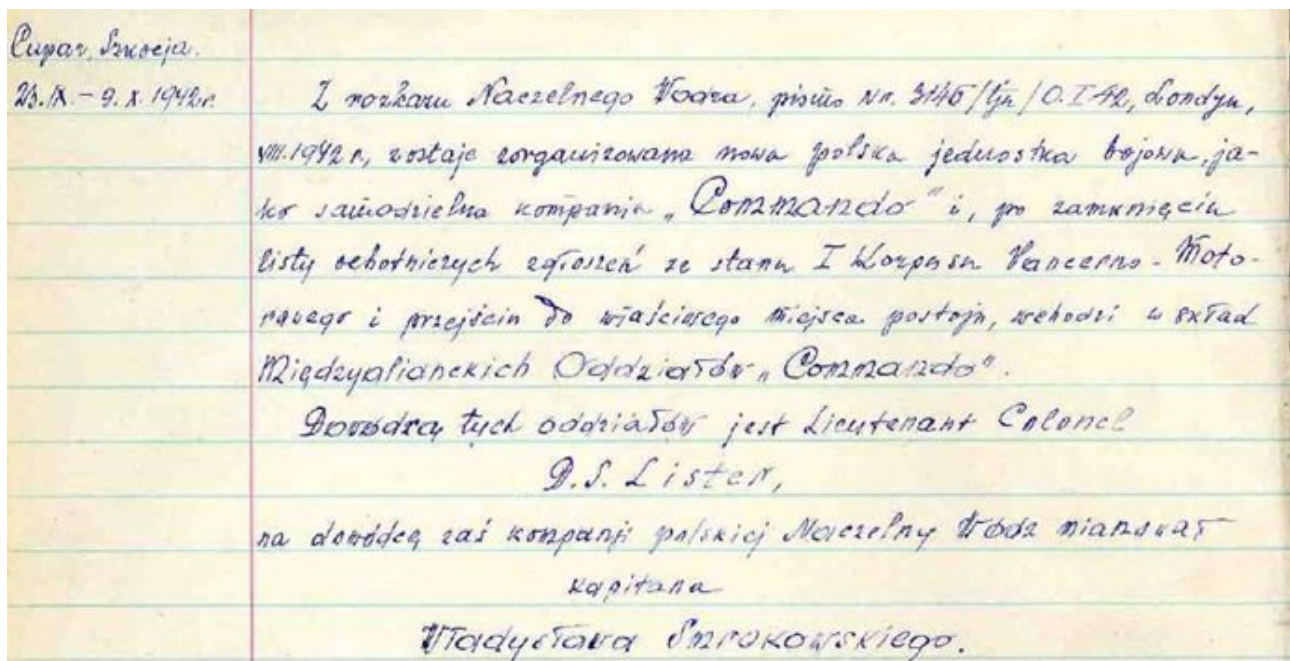 Cupar, Szkocja.
23.IX. – 9. X. 1942r.
Z rozkazu Naczelnego Wodza, pismo Nr. 3145/tjn/O.I-42, Londyn,
VIII.1942 r, zostaje zorganizowana nowa polska jednostka bojowa, ja-
ko samodzielna kompania „Commando" i, po zamknięciu
listy ochotniczych zgłoszeń ze stanu I Korpusu Pancerno-Moto-
rowego i przejściu do właściwego miejsca postoju, wchodzi w skład
Międzyalianckich Oddziałów „Commando".
Dowódcą tych oddziałów jest Lieutenant Colonel
D.S. Lister,
na dowódcę zaś kompanji polskiej Naczelny Wódz mianował
kapitana
Władysława Smrokowskiego.